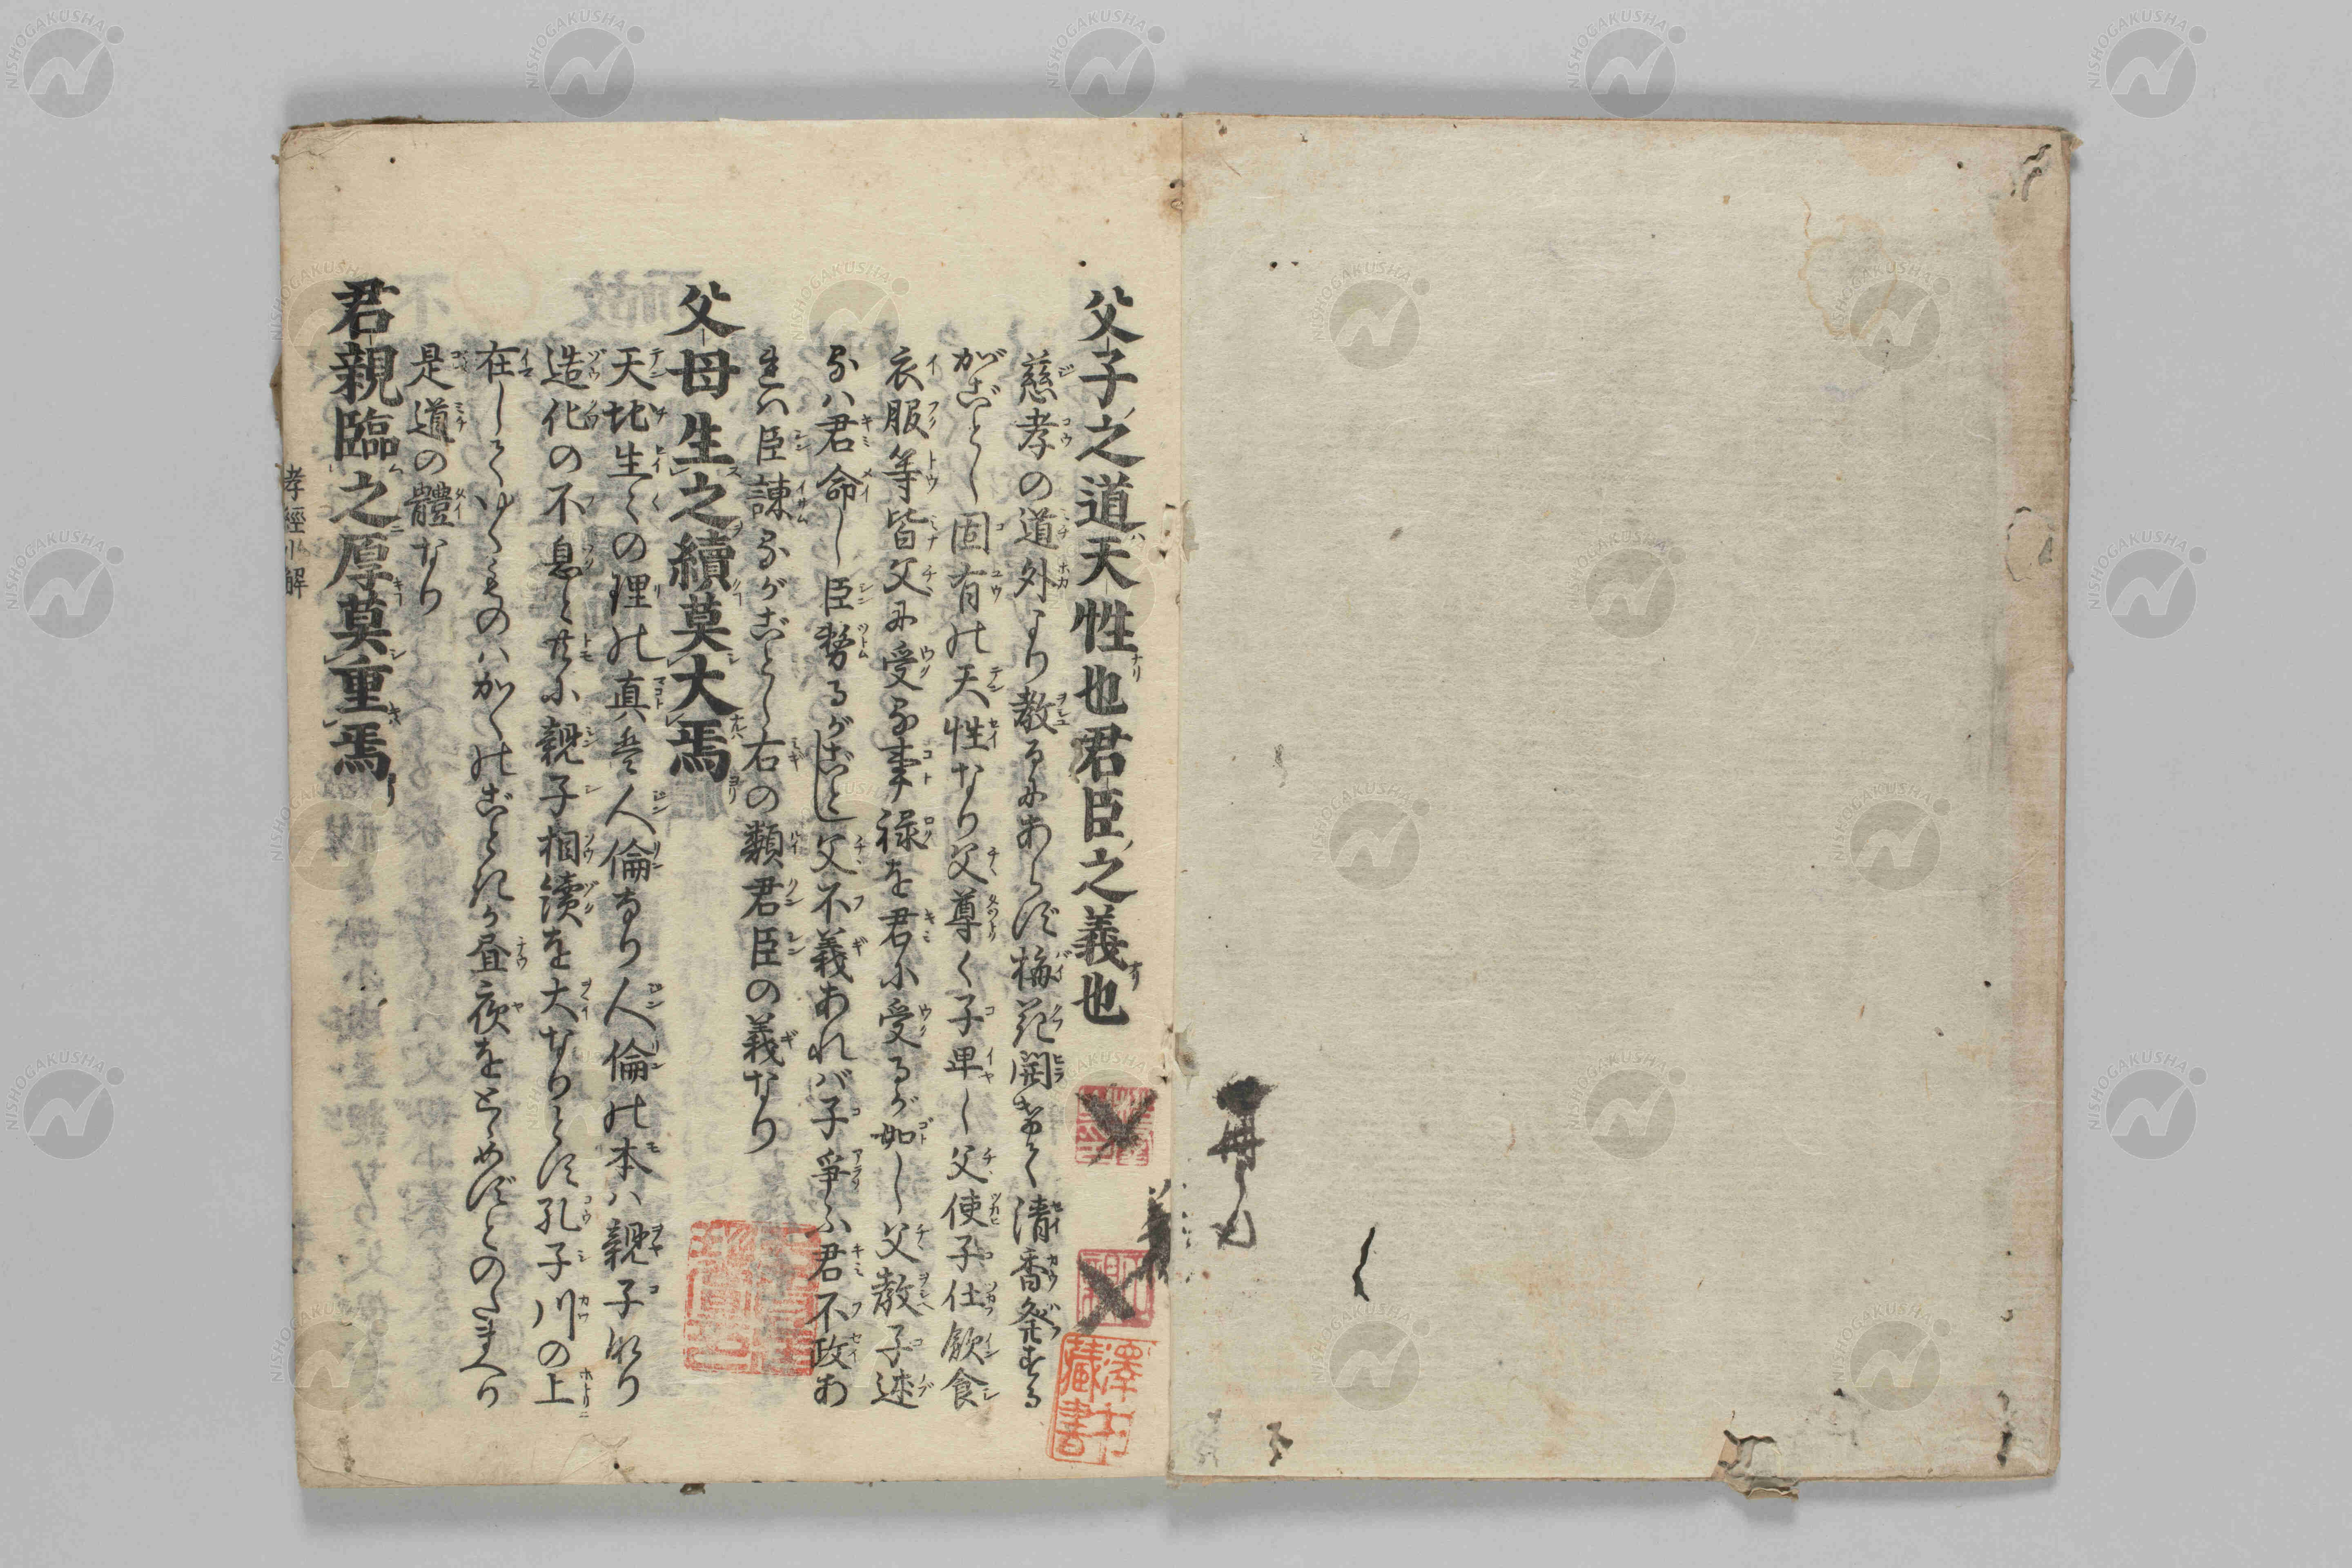 父子之道天性也君臣之義也
慈孝の道外より教るにあらず梅花開きて清香発する
がごとし固有の天性なり父尊く子卑し父使子仕飲食
衣服等皆父に受る事禄を君に受るが如し父教子述
るハ君命し臣務るがごとし父不義あれバ子争ふ君不政あ
れハ臣諫るがごとし右の類君臣の義なり
父母生之續莫大焉
天地生々の理の真是人倫なり人倫の本ハ親子なり
造化の不息と共に親子相續を大なりとす孔子川の上に
在してゆくものハかくのごときか昼夜をとゞめずとのたまへり
是道の體なり
君親臨之厚莫重焉
孝經小解
澤
藏書
NISHOGAKUSHA